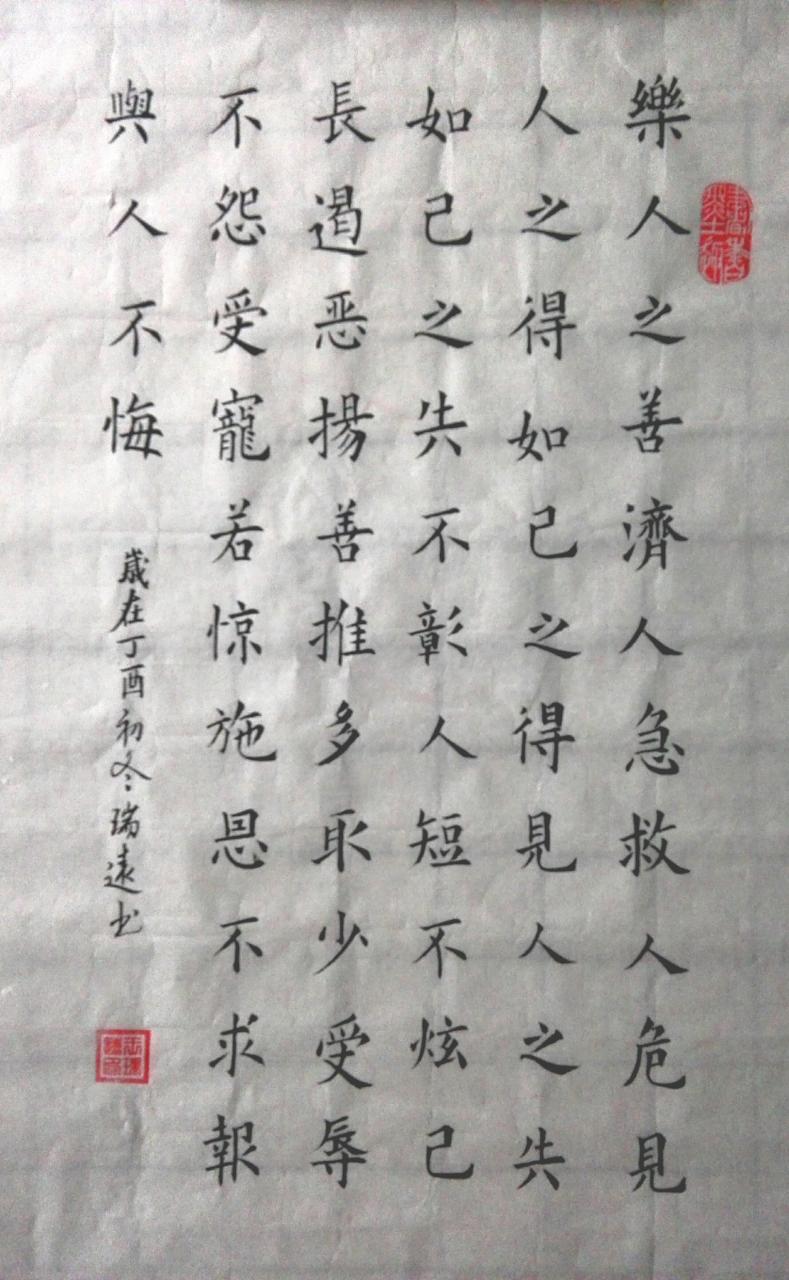 樂人之善濟人急救人危見
人之得如己之得見人之失
如己之失不彰人短不炫己
長遏恶揚善推多取少受辱
不怨受寵若惊施恩不求報
與人不悔
歲在丁酉初冬瑞遠书